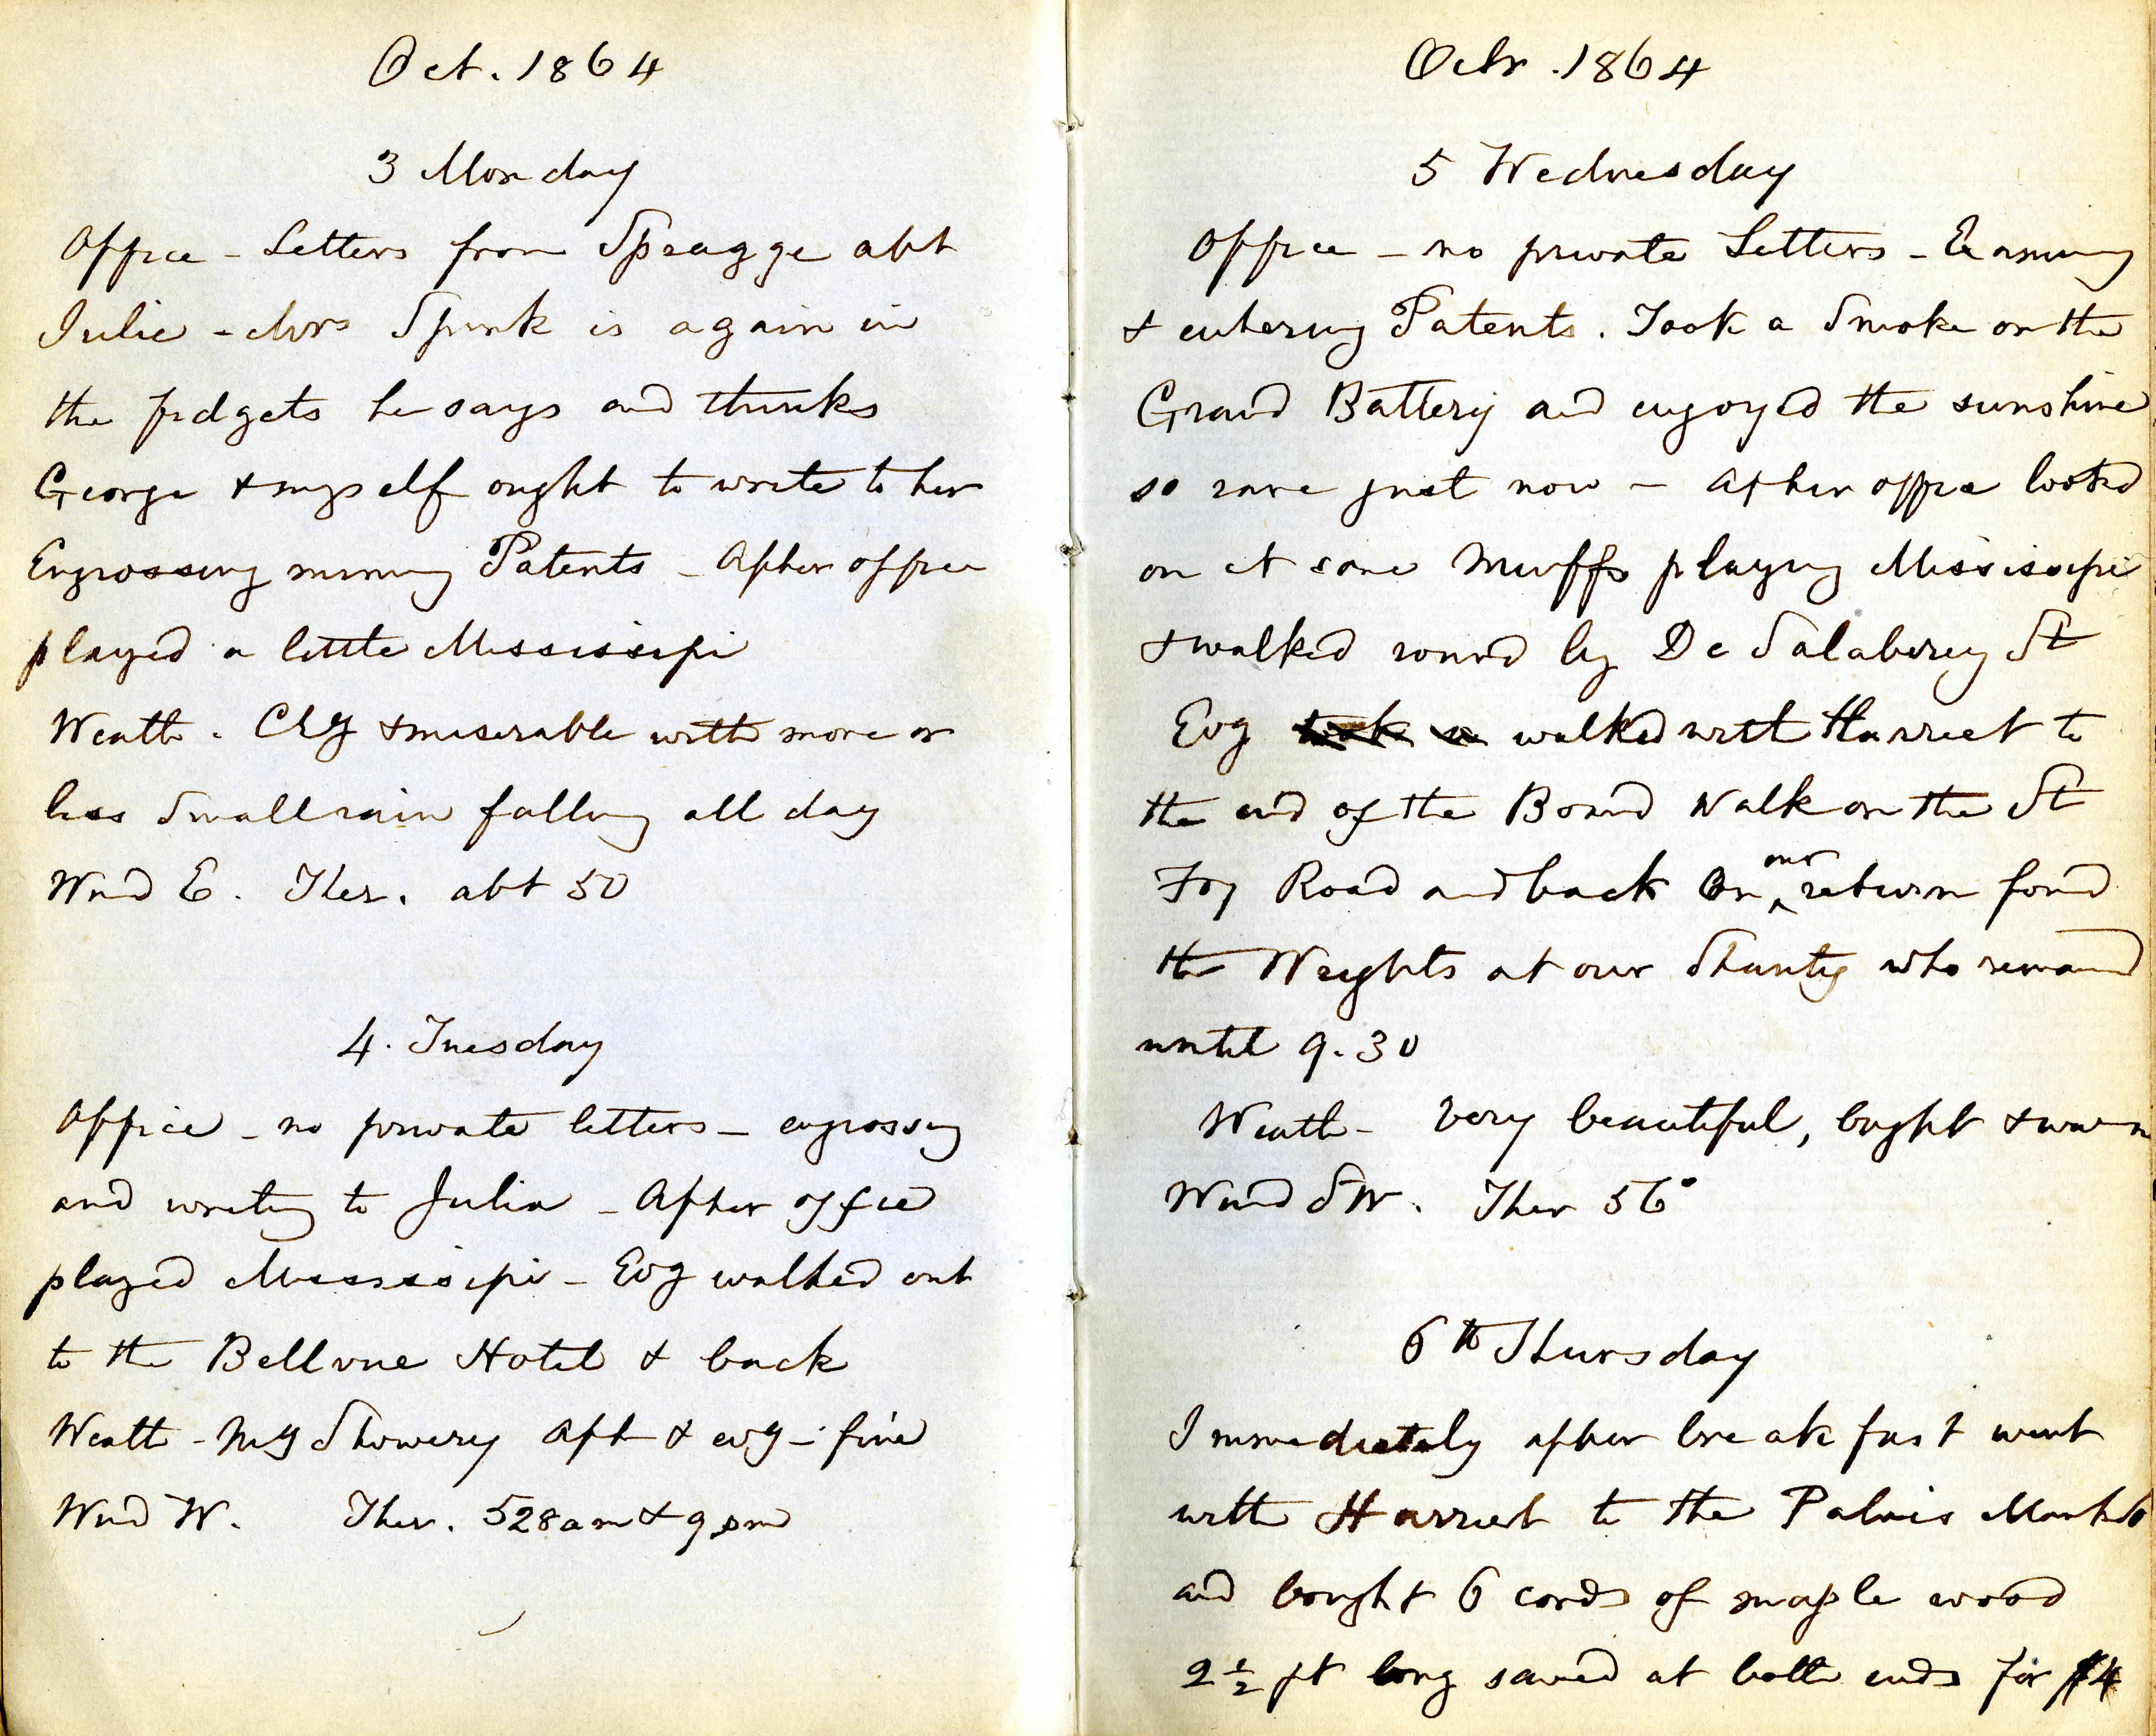 Oct. 1864
3 Monday
Office - Letters from Spragge abt
Julie - Mrs Spink is again in
the fidgets he says and thinks
George & myself ought to write to her
Engrossing mining Patents - After office
played a little Mississipi
Weath. Cly & miserable with more or
less Small rain falling all day
Wind E. Ther. abt 50
4. Tuesday
Office - no private letters - engrossing
and writing to Julia - After office
played Mississipi - Evg walked out
to the Bellvue Hotel & back
Weath - Mg Showery Aft & evg - fine
Wind W. Ther. 52 8 am & 9 pm
Octr. 1864
5 Wednesday
Office - no private Letters -
& entering Patents. Took a Smoke on the
Grand Battery and enjoyed the sunshine
so rare just now - After office looked
on at some Muffs playing Mississipi
& walked round by De Salaberry St
Evg took a walked with Harriet to
the end of the Board Walk on the St
Foy Road and back On our return found
the Weights at our Shanty who remaind
until 9.30
Weath - Very beautiful, bright & warm
Wind SW. Ther 56°
6th Thursday
Immediately after breakfast went
with Harriet to the Palais Market
and bought 6 cords of maple wood
2½ ft long sawed at both ends for $4